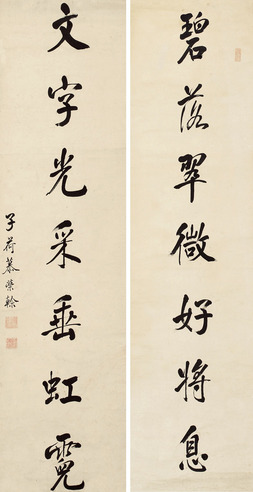 碧落翠微好將息
文字光采垂虹霓
子荷慕榮榦